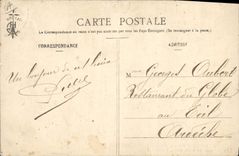 CARTE POSTALE
La Correspondance au recto n'est pas acceptée par tous les Pays Étrangers (Se renseigner à la poste.)
CORRESPONDANCE
ADRESSE
Un bonjour de
Georges Aubert
Restaurant du Globe
au Teil
Ardèche